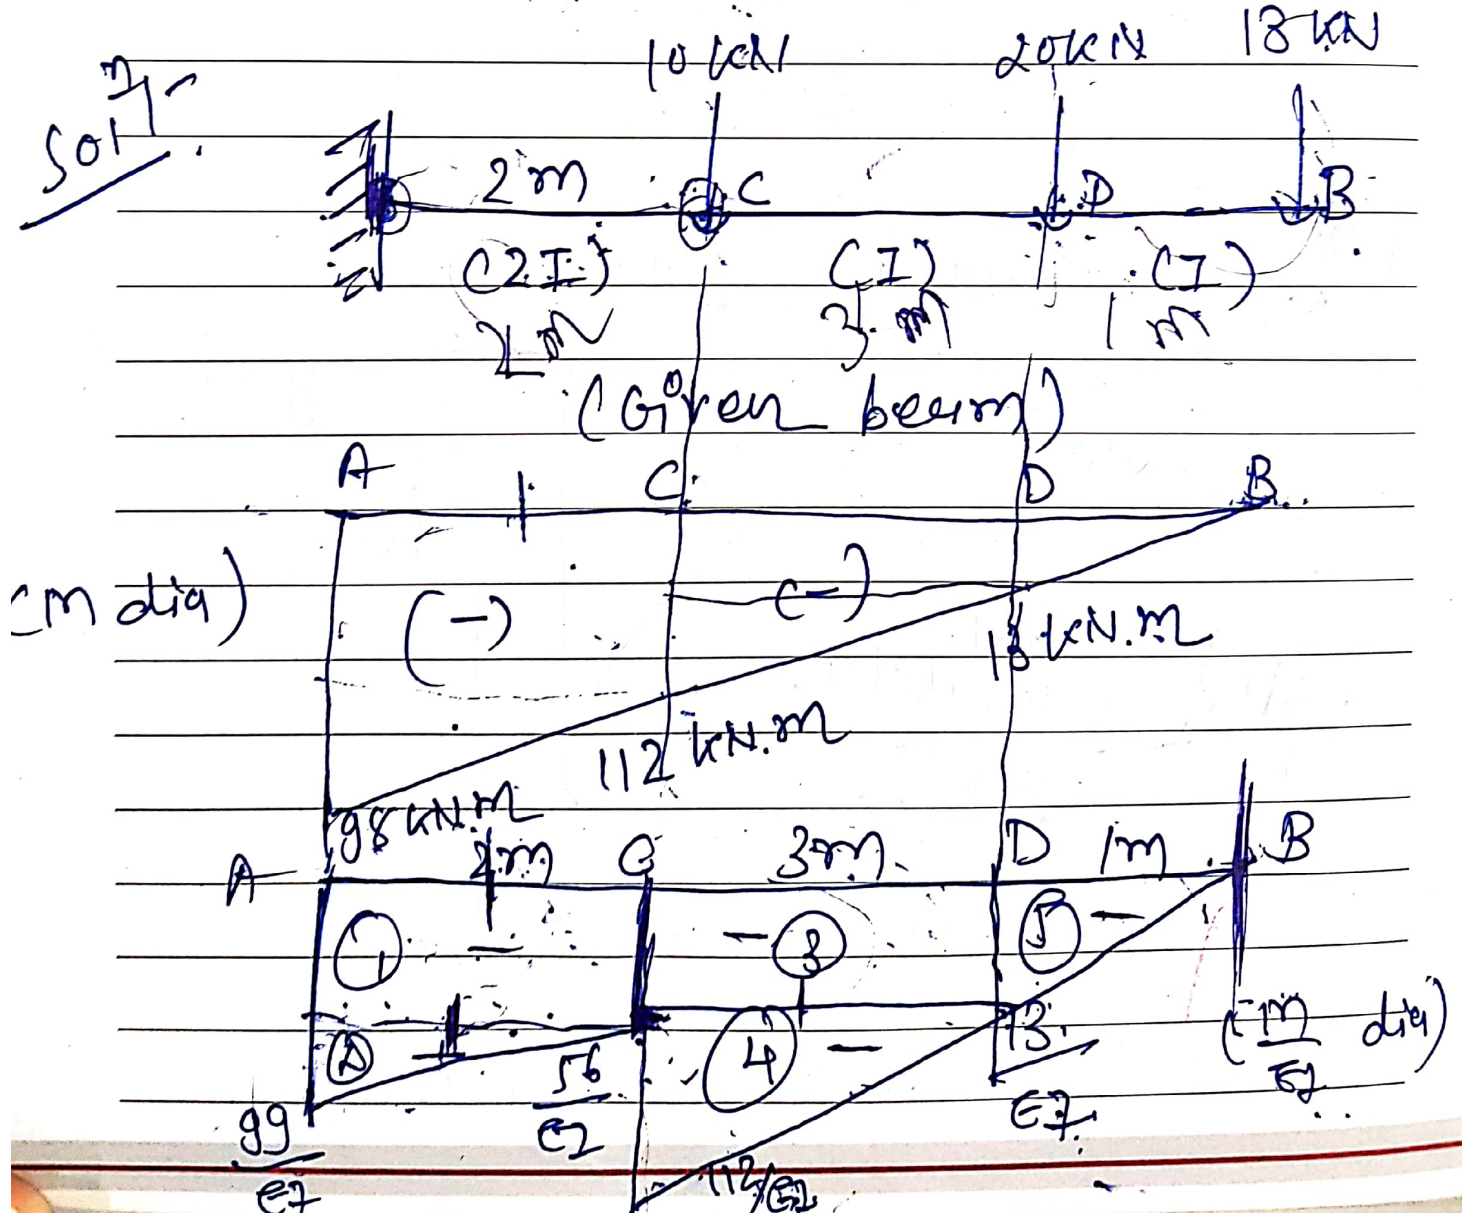 Solⁿ.
10 kN 20kN 13 kN
2m C D B
(2I) (I) (I)
2m 3m 1m
(Given beam)
A C D B
(M dia) (-) (-)
13 kN.m
112 kN.m
98 kN.m
A 2m C 3m D 1m B
① - - ③ ⑤ -
② ④ - 13
EI
(M/EI dia)
56/EI
99/EI
112/EI